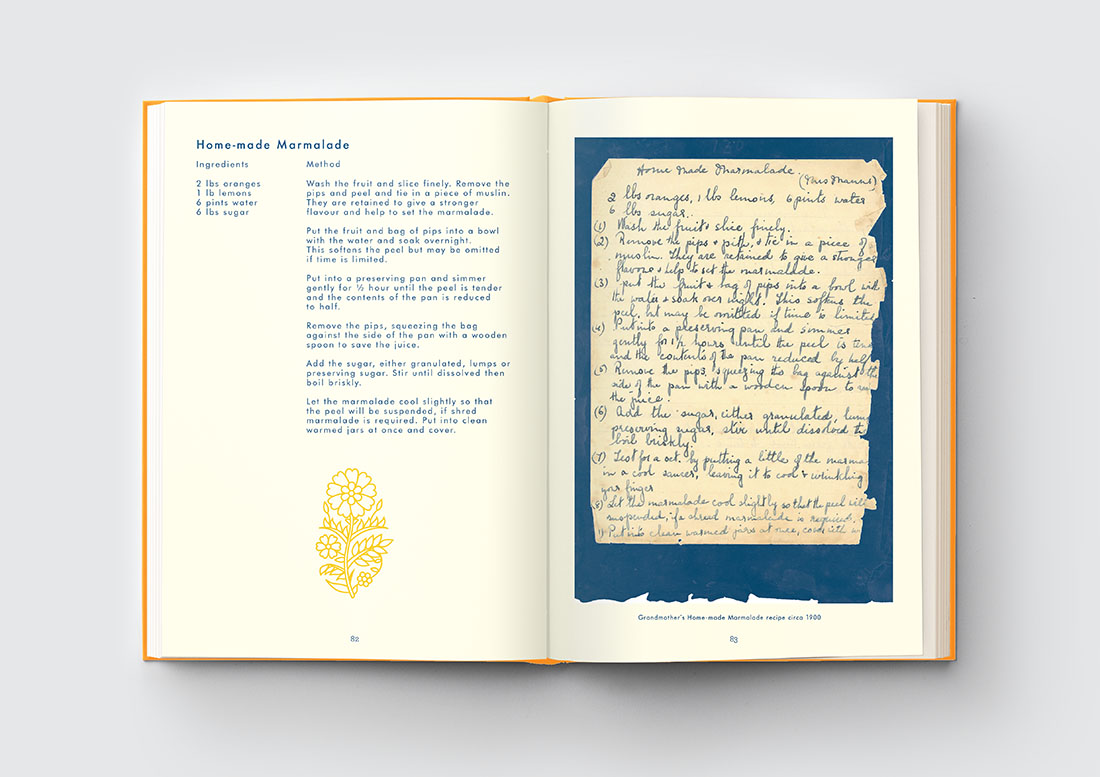 Home-made Marmalade
Ingredients
2 lbs oranges
1 lb lemons
6 pints water
6 lbs sugar
Method
Wash the fruit and slice finely. Remove the
pips and peel and tie in a piece of muslin.
They are retained to give a stronger
flavour and help to set the marmalade.
Put the fruit and bag of pips into a bowl
with the water and soak overnight.
This softens the peel but may be omitted
if time is limited.
Put into a preserving pan and simmer
gently for ½ hour until the peel is tender
and the contents of the pan is reduced
to half.
Remove the pips, squeezing the bag
against the side of the pan with a wooden
spoon to save the juice.
Add the sugar, either granulated, lumps or
preserving sugar. Stir until dissolved then
boil briskly.
Let the marmalade cool slightly so that
the peel will be suspended, if shred
marmalade is required. Put into clean
warmed jars at once and cover.
82
Home Made Marmalade
2 lbs oranges, 1 lbs lemons, 6 pints water
6 lbs sugar.
(1) Wash the fruit & slice finely.
(2) Remove the pips & pith, & tie in a piece of
muslin. They are retained to give a stronger
flavour & help to set the marmalade.
(3) put the fruit & bag of pips into a bowl with
the water & soak over night. This softens the
peel, but may be omitted if time is limited
(4) Put into a preserving pan and simmer
gently for 1½ hours until the peel is
and the contents of the pan reduced by half
(5) Remove the pips, squeezing the bag against the
side of the pan with a wooden spoon to
the juice.
(6) Add the sugar, either granulated,
preserving sugar, stir until dissolved
boil briskly.
(7) Test for a set. by putting a little of the
in a cool saucer, leaving it to cool & wrinkling
your finger
(8) Let the marmalade cool slightly so that the peel will
suspended, if a shred marmalade is required.
Put into clean warmed jars at once, cover with
Grandmother's Home-made Marmalade recipe circa 1900
83